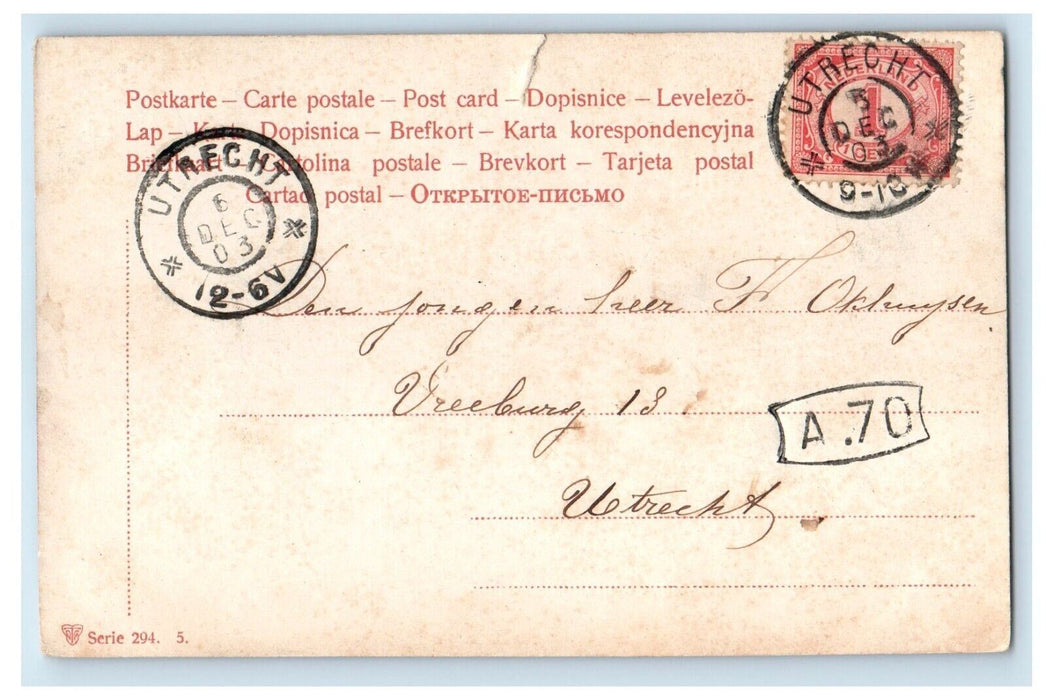 Postkarte – Carte postale – Post card – Dopisnice – Levelező-
Lap – Karta Dopisnica – Brefkort – Karta korespondencyjna
Briefkaart – Cartolina postale – Brevkort – Tarjeta postal
Cartao postal – Открытое-письмо
UTRECHT
5
DEC
03
9-10
NEDERLAND
1
CENT
UTRECHT
6
DEC
03
12-6V
Den jongen heer F Okhuysen
Vreeburg 13
A.70
Utrecht
Serie 294. 5.